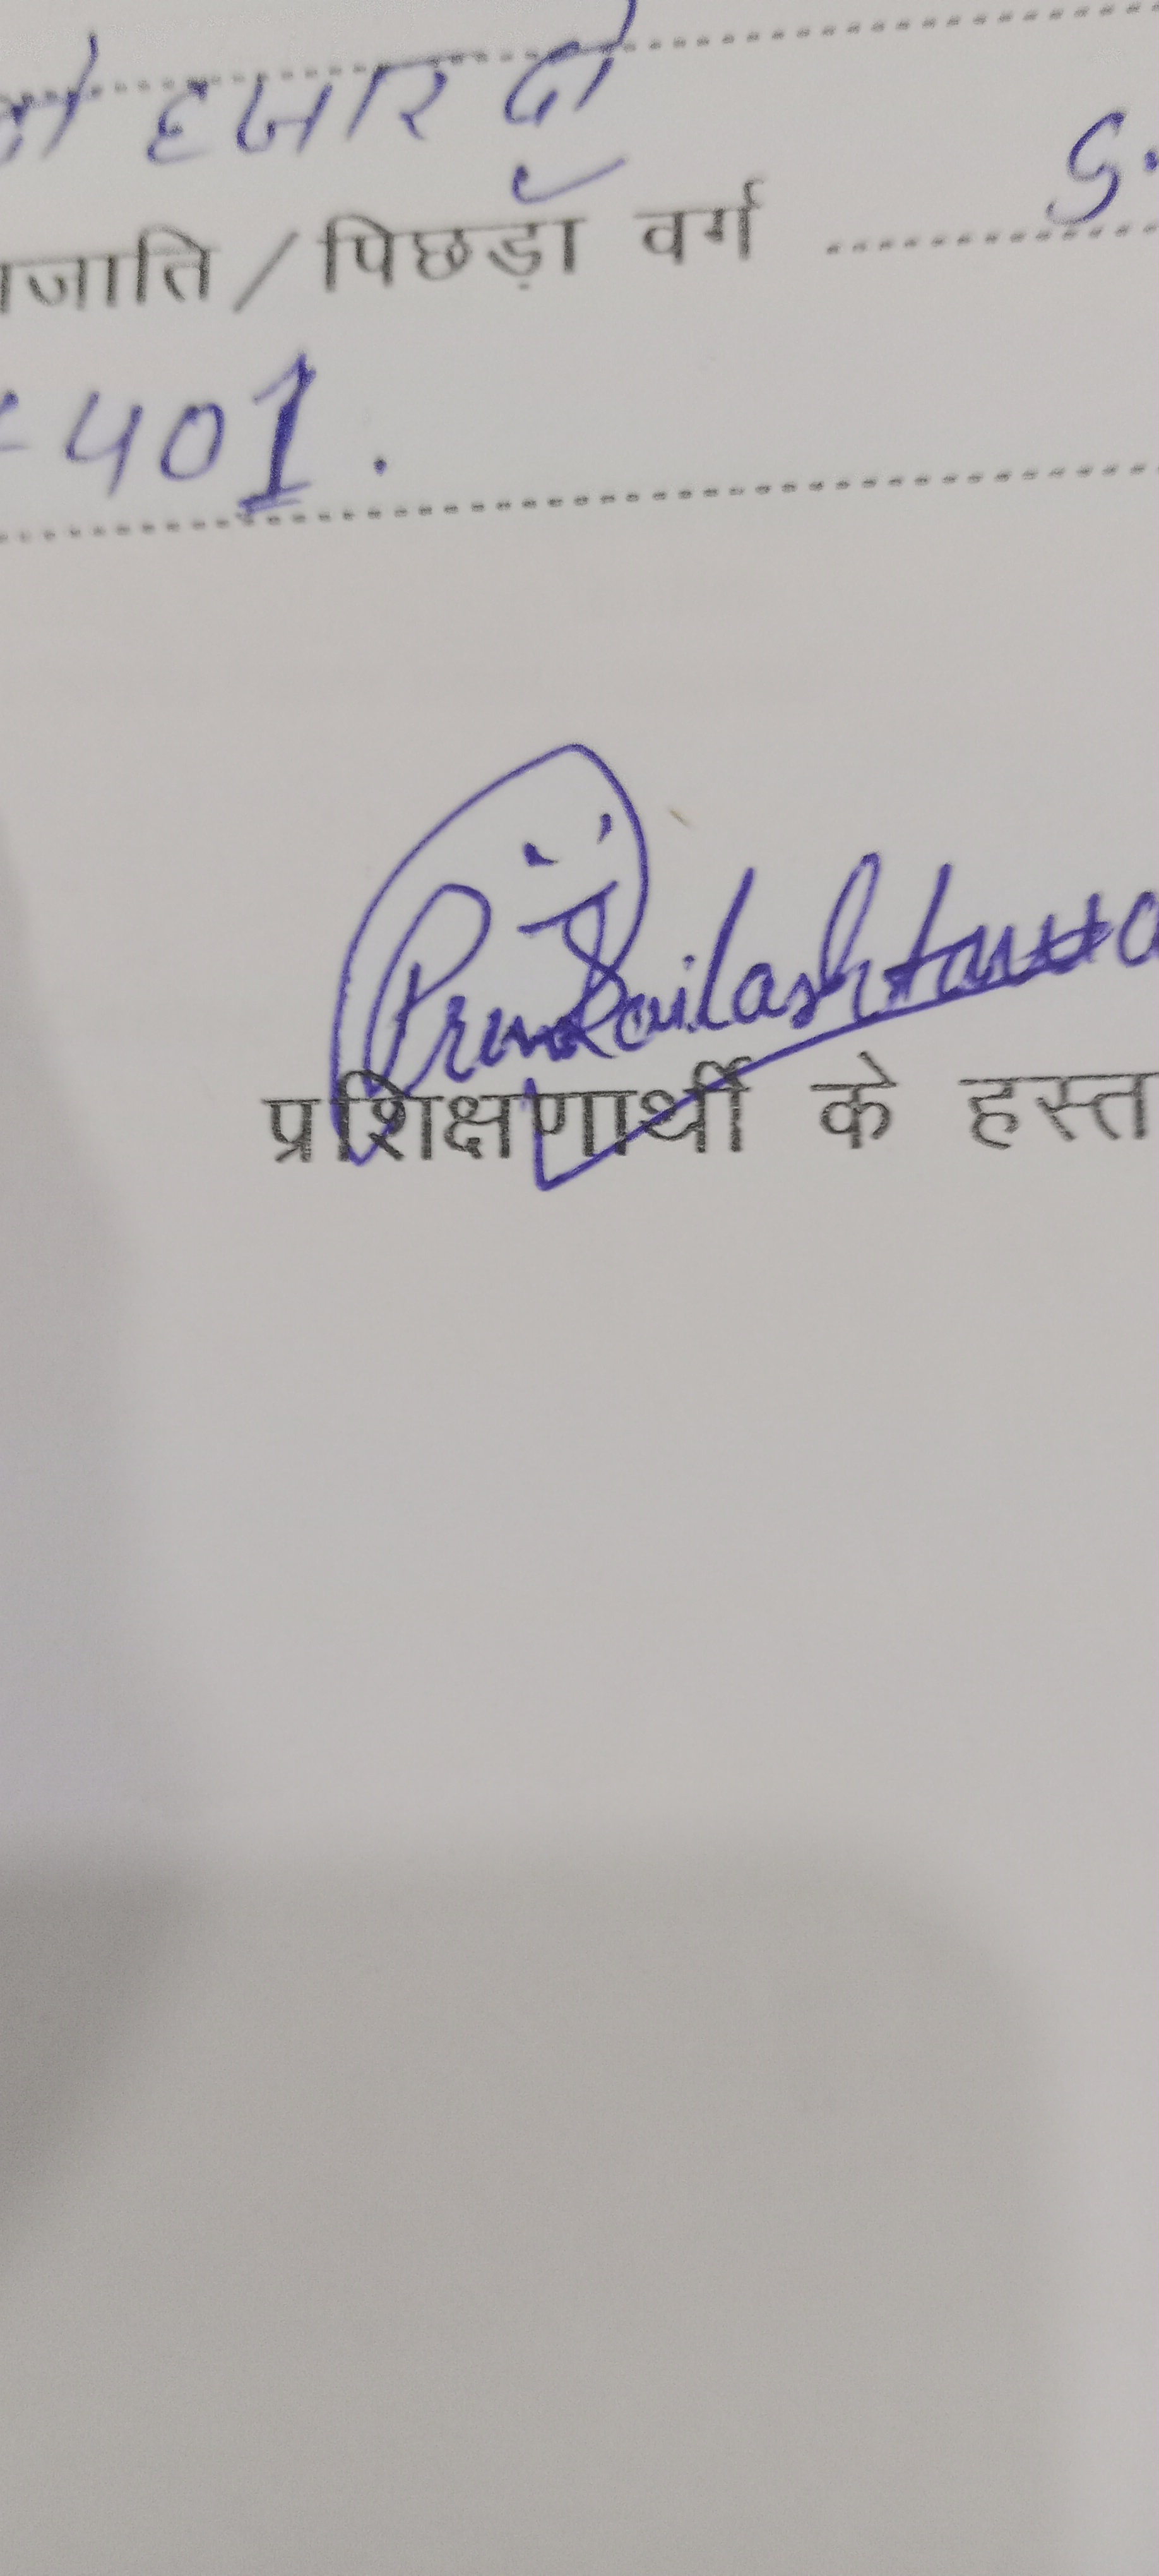 हजार दो
जाति / पिछड़ा वर्ग ........ S.
401.
Prem Kailash
प्रशिक्षणार्थी के हस्त